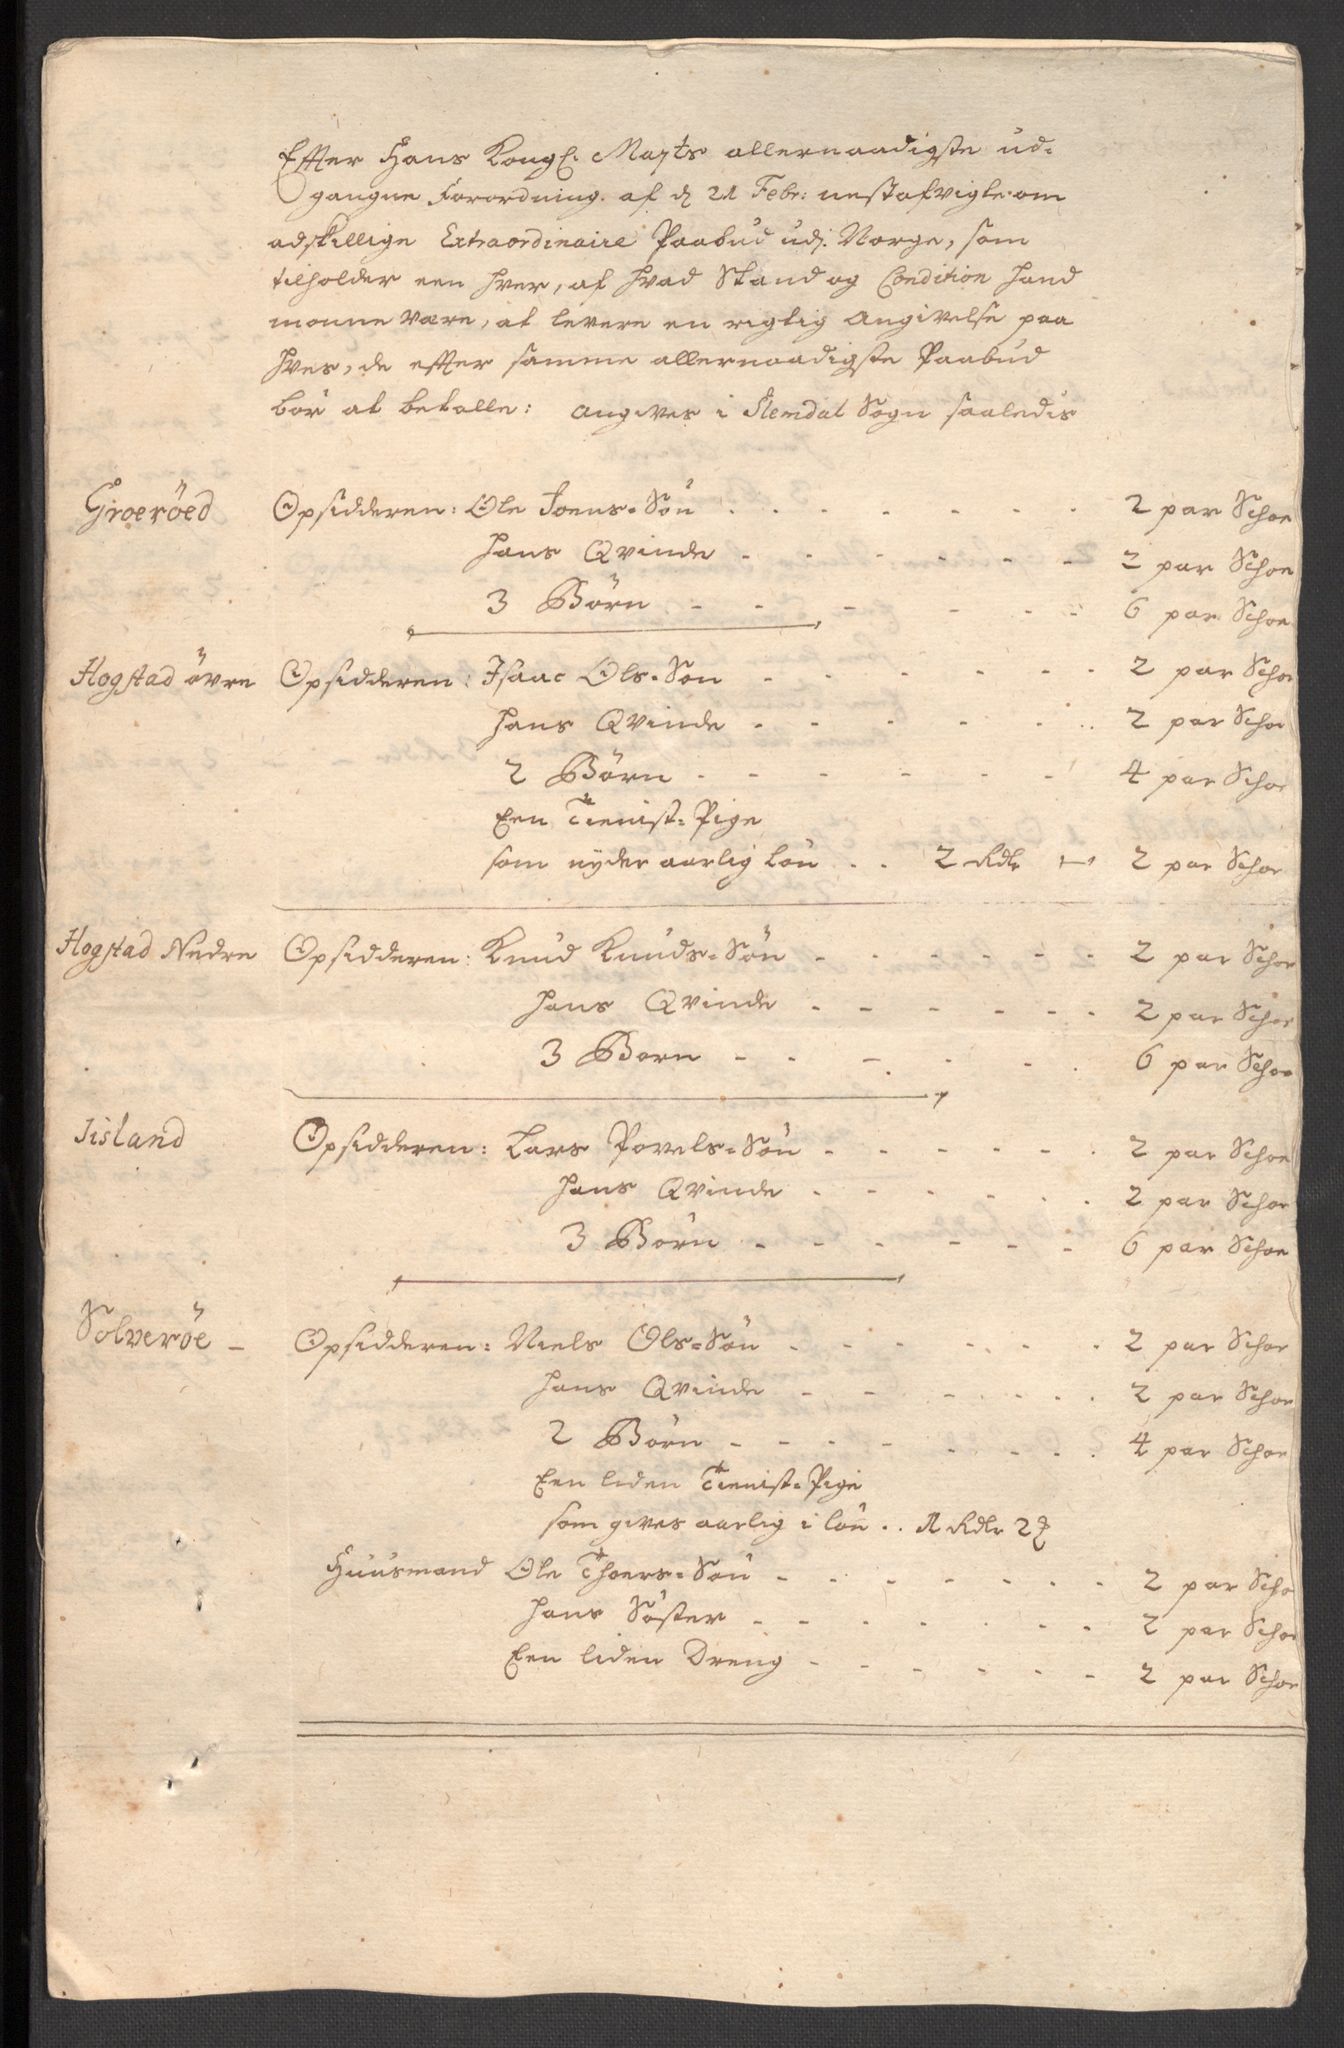 Effter Hans Kongl. Mayts allernaadigste ud-
gangne Forordning. af d 21 Febr: nestafvigte om
adskillige Extraordinaire Paabud udj Norge, som
tilholder een hver, af hvad Stand og Condition hand
monne være, at levere en rigtig Angivelse paa
hves, de effter samme allernaadigste Paabud
bör at betalle: angives i Slemdal Sogn saaledis
Groeröed Opsidderen: Ole Joens-Sön 2 par Schoe
hans Qvinde 2 par Schoe
3 Börn 6 par Schoe
Hogstad övre Opsidderen: Isaac Ols-Son 2 par Schoe
hans Qvinde 2 par Schoe
2 Börn 4 par Schoe
Een Tienist-Pige
som nyder aarlig Lön 2 Rdlr 2 par Schoe
Hogstad Nedre Opsidderen: Knud Knuds-Sön 2 par Schoe
hans Qvinde 2 par Schoe
3 Born 6 par Schoe
Iisland Opsidderen: Lars Povels-Sön 2 par Schoe
hans Qvinde 2 par Schoe
3 Börn 6 par Schoe
Solveröe Opsidderen: Niels Ols-Sön 2 par Schoe
hans Qvinde 2 par Schoe
2 Börn 4 par Schoe
Een liden Tienist-Pige
som gives aarlig i lön 1 Rdlr 2
Huusmand Ole Thoers-Son 2 par Scho
hans Söster 2 par Schoe
Een liden Dreng 2 par Schoe